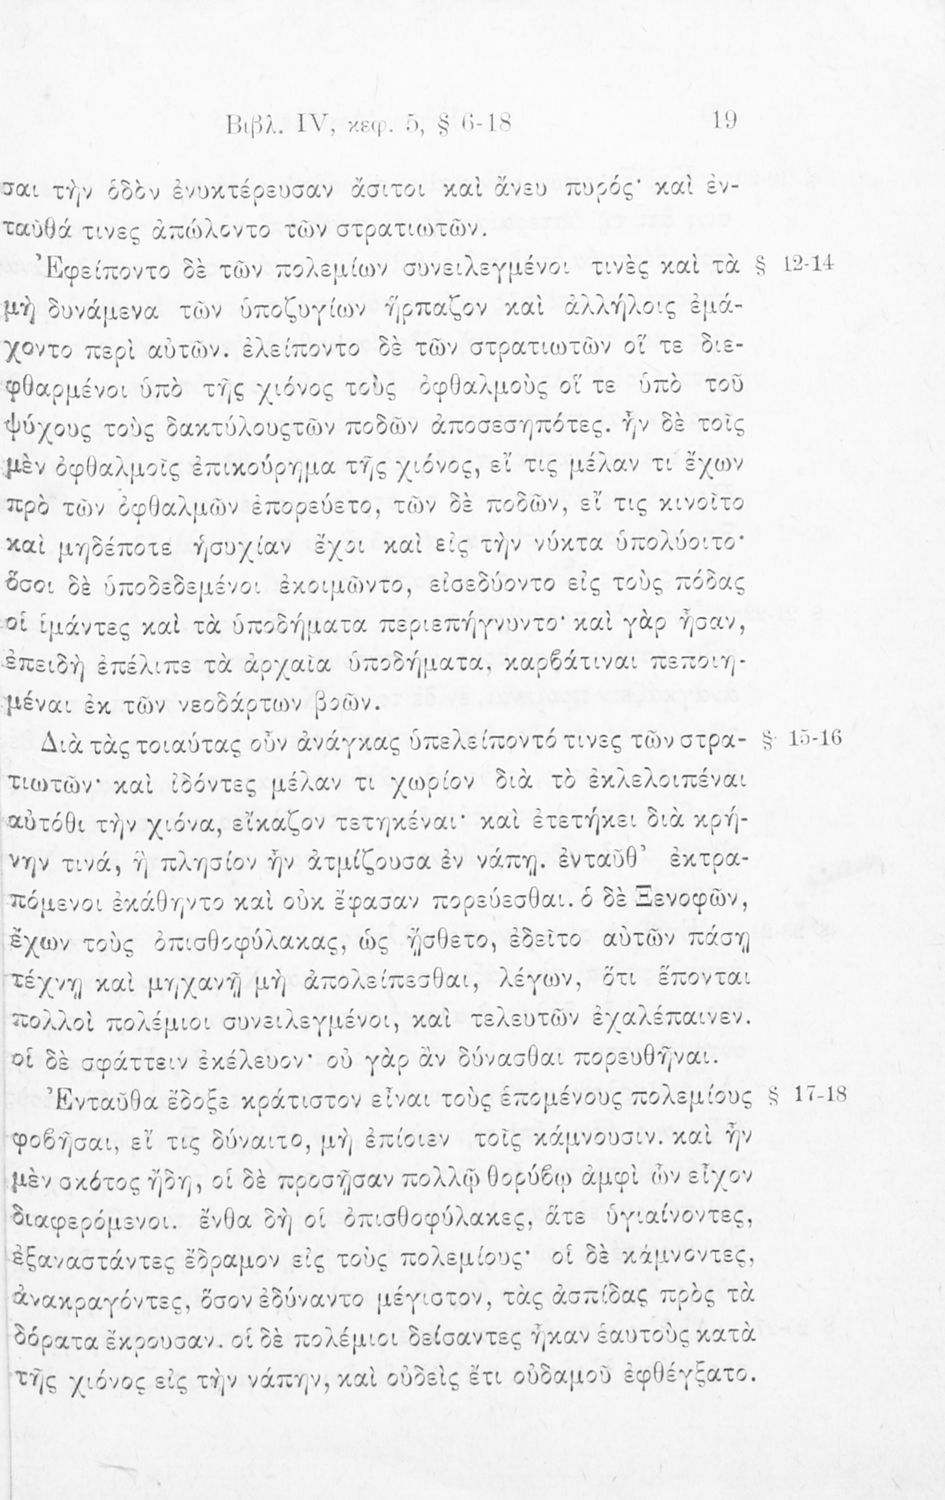 Βιβλ. IV, κεφ. 5, § 6-18 19
σαι τὴν ὁδὸν ἐνυκτέρευσαν ἄσιτοι καὶ ἄνευ πυρός· καὶ ἐν-
ταῦθά τινες ἀπώλοντο τῶν στρατιωτῶν.
Ἐφείποντο δὲ τῶν πολεμίων συνειλεγμένοι τινὲς καὶ τὰ § 12-14
μὴ δυνάμενα τῶν ὑποζυγίων ἥρπαζον καὶ ἀλλήλοις ἐμά-
χοντο περὶ αὐτῶν. ἐλείποντο δὲ τῶν στρατιωτῶν οἵ τε διε-
φθαρμένοι ὑπὸ τῆς χιόνος τοὺς ὀφθαλμοὺς οἵ τε ὑπὸ τοῦ
ψύχους τοὺς δακτύλουςτῶν ποδῶν ἀποσεσηπότες. ἦν δὲ τοῖς
μὲν ὀφθαλμοῖς ἐπικούρημα τῆς χιόνος, εἴ τις μέλαν τι ἔχων
πρὸ τῶν ὀφθαλμῶν ἐπορεύετο, τῶν δὲ ποδῶν, εἴ τις κινοῖτο
καὶ μηδέποτε ἡσυχίαν ἔχοι καὶ εἰς τὴν νύκτα ὑπολύοιτο·
ὅσοι δὲ ὑποδεδεμένοι ἐκοιμῶντο, εἰσεδύοντο εἰς τοὺς πόδας
οἱ ἱμάντες καὶ τὰ ὑποδήματα περιεπήγνυντο· καὶ γὰρ ἦσαν,
ἐπειδὴ ἐπέλιπε τὰ ἀρχαῖα ὑποδήματα, καρβάτιναι πεποιη-
μέναι ἐκ τῶν νεοδάρτων βοῶν.
Διὰ τὰς τοιαύτας οὖν ἀνάγκας ὑπελείποντό τινες τῶν στρα- § 15-16
τιωτῶν· καὶ ἰδόντες μέλαν τι χωρίον διὰ τὸ ἐκλελοιπέναι
αὐτόθι τὴν χιόνα, εἴκαζον τετηκέναι· καὶ ἐτετήκει διὰ κρή-
νην τινά, ἣ πλησίον ἦν ἀτμίζουσα ἐν νάπῃ. ἐνταῦθ’ ἐκτρα-
πόμενοι ἐκάθηντο καὶ οὐκ ἔφασαν πορεύεσθαι. ὁ δὲ Ξενοφῶν,
ἔχων τοὺς ὀπισθοφύλακας, ὡς ᾔσθετο, ἐδεῖτο αὐτῶν πάσῃ
τέχνῃ καὶ μηχανῇ μὴ ἀπολείπεσθαι, λέγων, ὅτι ἕπονται
πολλοὶ πολέμιοι συνειλεγμένοι, καὶ τελευτῶν ἐχαλέπαινεν.
οἱ δὲ σφάττειν ἐκέλευον· οὐ γὰρ ἂν δύνασθαι πορευθῆναι.
Ἐνταῦθα ἔδοξε κράτιστον εἶναι τοὺς ἑπομένους πολεμίους § 17-18
φοβῆσαι, εἴ τις δύναιτο, μὴ ἐπίοιεν τοῖς κάμνουσιν. καὶ ἦν
μὲν σκότος ἤδη, οἱ δὲ προσῇσαν πολλῷ θορύβῳ ἀμφὶ ὧν εἶχον
διαφερόμενοι. ἔνθα δὴ οἱ ὀπισθοφύλακες, ἅτε ὑγιαίνοντες,
ἐξαναστάντες ἔδραμον εἰς τοὺς πολεμίους· οἱ δὲ κάμνοντες,
ἀνακραγόντες, ὅσον ἐδύναντο μέγιστον, τὰς ἀσπίδας πρὸς τὰ
δόρατα ἔκρουσαν. οἱ δὲ πολέμιοι δείσαντες ἧκαν ἑαυτοὺς κατὰ
τῆς χιόνος εἰς τὴν νάπην, καὶ οὐδεὶς ἔτι οὐδαμοῦ ἐφθέγξατο.